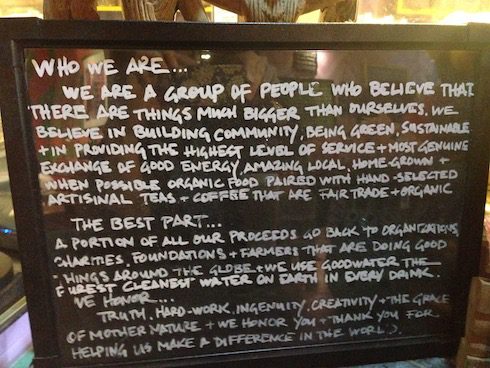 WHO WE ARE...
WE ARE A GROUP OF PEOPLE WHO BELIEVE THAT
THERE ARE THINGS MUCH BIGGER THAN OURSELVES. WE
BELIEVE IN BUILDING COMMUNITY, BEING GREEN, SUSTAINABLE
+ IN PROVIDING THE HIGHEST LEVEL OF SERVICE + MOST GENUINE
EXCHANGE OF GOOD ENERGY, AMAZING LOCAL, HOME-GROWN +
WHEN POSSIBLE ORGANIC FOOD PAIRED WITH HAND-SELECTED
ARTISINAL TEAS + COFFEE THAT ARE FAIR TRADE + ORGANIC
THE BEST PART...
A PORTION OF ALL OUR PROCEEDS GO BACK TO ORGANIZATIONS,
CHARITIES, FOUNDATIONS + FARMERS THAT ARE DOING GOOD
THINGS AROUND THE GLOBE + WE USE GOODWATER THE
PUREST CLEANEST WATER ON EARTH IN EVERY DRINK.
WE HONOR...
TRUTH, HARD-WORK, INGENUITY, CREATIVITY + THE GRACE
OF MOTHER NATURE + WE HONOR YOU + THANK YOU FOR
HELPING US MAKE A DIFFERENCE IN THE WORLD.